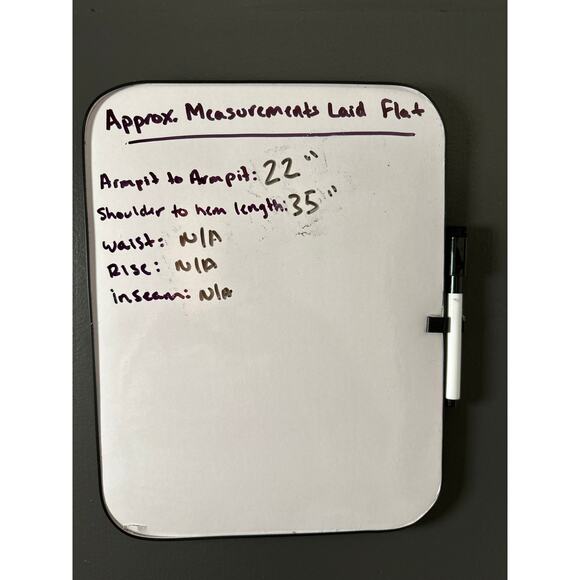 Approx. Measurements Laid Flat
Armpit to Armpit: 22"
Shoulder to hem length: 35"
Waist: N/A
Rise: N/A
inseam: N/A